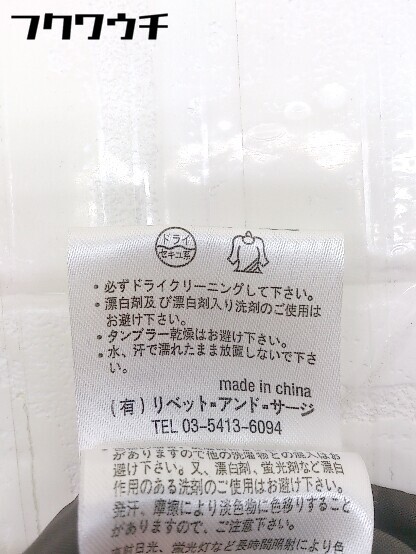 フクワウチ
ドライ
セキユ系
・必ずドライクリーニングして下さい。
・漂白剤及び漂白剤入り洗剤のご使用は
お避け下さい。
・タンブラー乾燥はお避け下さい。
・水、汗で濡れたまま放置しないで下さ
い。
made in china
(有)リベット・アンド・サージ
TEL 03-5413-6094
がありますので他の洗濯物との混入はお
避け下さい。又、漂白剤、蛍光剤など漂白
作用のある洗剤のご使用はお避け下さい。
発汗、摩擦により淡色物に色移りすること
がありますので、ご注意下さい。
日光、蛍光灯など長時間照射により色